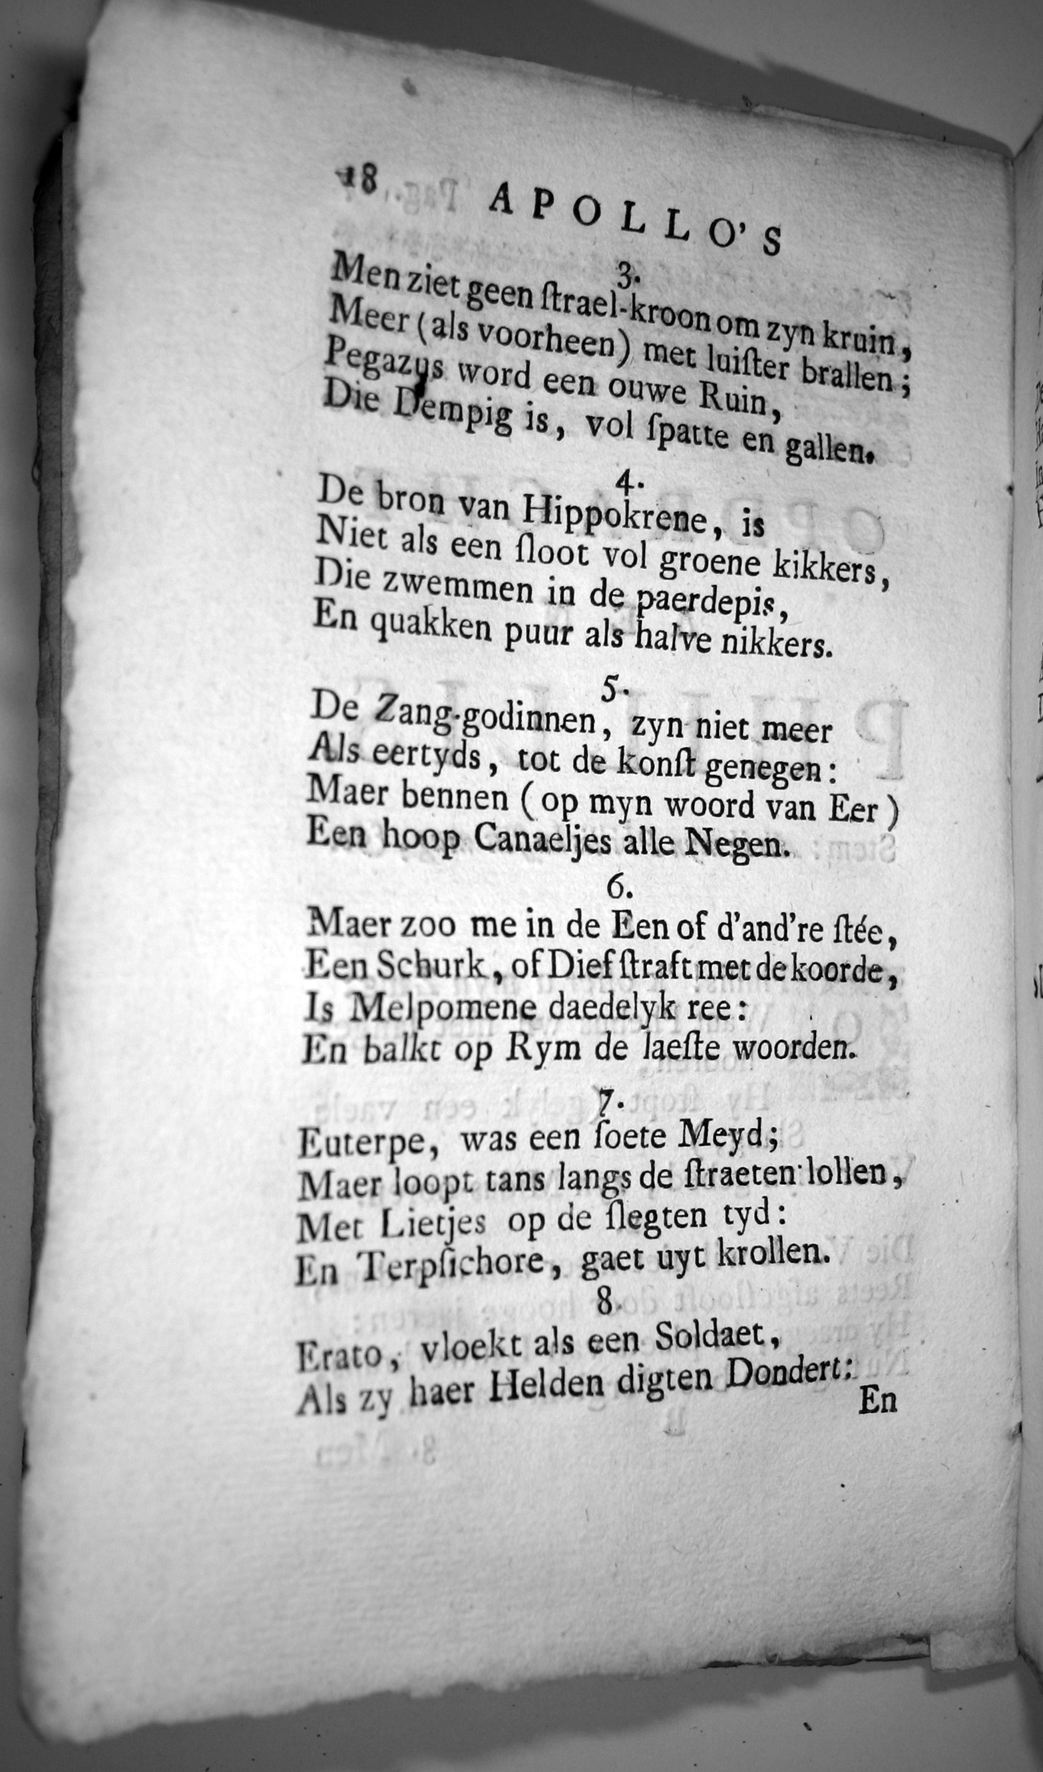 18 APOLLO'S
3.
Men ziet geen ſtrael-kroon om zyn kruin,
Meer (als voorheen) met luiſter brallen;
Pegazus word een ouwe Ruin,
Die Dempig is, vol ſpatte en gallen.
4.
De bron van Hippokrene, is
Niet als een ſloot vol groene kikkers,
Die zwemmen in de paerdepis,
En quakken puur als halve nikkers.
5.
De Zang-godinnen, zyn niet meer
Als eertyds, tot de konſt genegen:
Maer bennen (op myn woord van Eer)
Een hoop Canaeljes alle Negen.
6.
Maer zoo me in de Een of d'and're ſtée,
Een Schurk, of Dief ſtraft met de koorde,
Is Melpomene daedelyk ree:
En balkt op Rym de laeſte woorden.
7.
Euterpe, was een ſoete Meyd;
Maer loopt tans langs de ſtraeten lollen,
Met Lietjes op de ſlegten tyd:
En Terpſichore, gaet uyt krollen.
8.
Erato, vloekt als een Soldaet,
Als zy haer Helden digten Dondert:
En